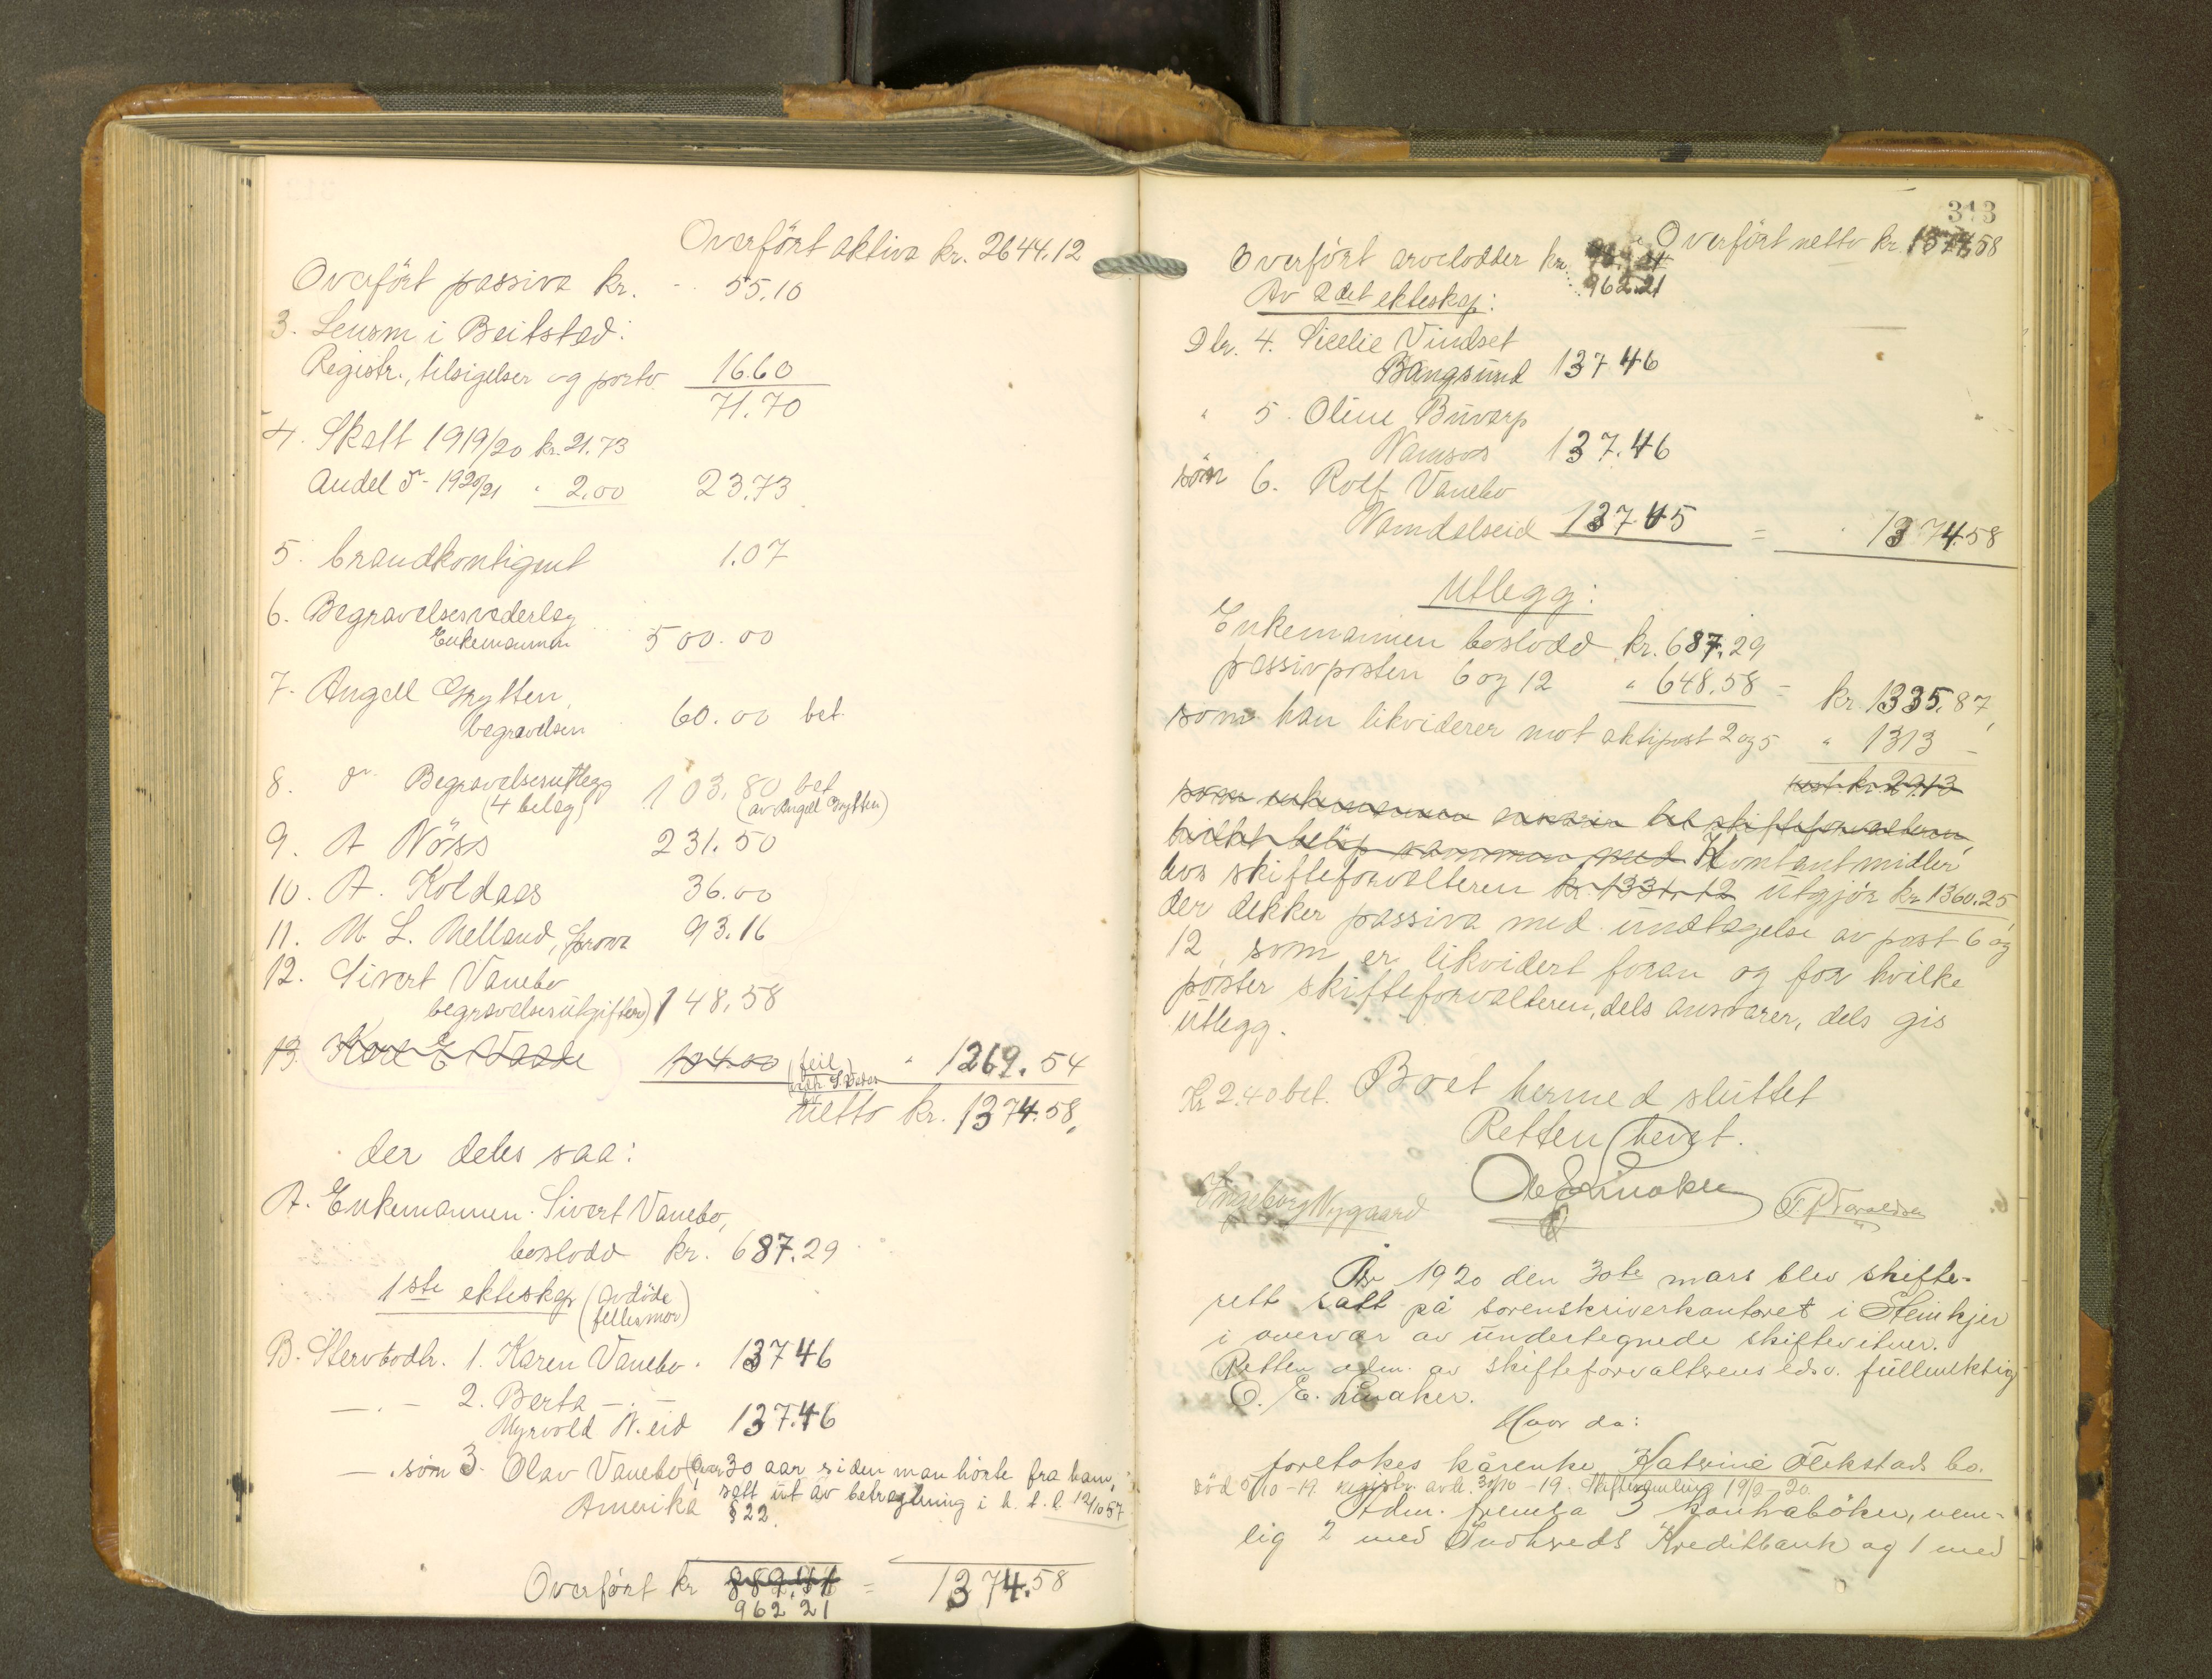 Overført aktiva kr. 2644.12
Overført passiva kr. - 55.10
3. Lensm i Beitstad:
Registr., tilsigelser og porto 16.60
71.70
4. Skatt 1919/20 kr. 21.73
Andel do 1920/21 " 2.00 23.73
5. brandkontigent 1.07
6. Begravelsesvederlag
Enkemannen 500.00
7. Angell Grytten,
begravelsen 60.00 bet.
8. do Begravelsesutlegg 103.80 bet
(4 beleg) (av Angell Grytten)
9. A Nöss 231.50
10. A. Koldaas 36.00
11. M. L. Melland, Sprova 93.16
12. Sivert Vanebo
begravelsesutgifter) 148.58
13. Karl E. Vaade 104.00 (feil) " 1269.54
netto kr. 1374.58,
der deles saa:
A. Enkemannen Sivert Vanebo,
boslodd kr. 687.29
1ste ekteskap (avdöde
fellesmor)
B. Stervbodtr. 1. Karen Vanebo. 137 46
— . — 2. Berta — . —
Myrvold N.eid 137.46
— . sön 3. Olav Vanebo (over 30 aar siden man hörte fra ham,
Amerika satt ut av betragtning i h. t. l. 12/10 57
§ 22.
Overført kr 889.41 = 1374.58
962 21
313
Overført netto kr. 1374.58
Overført arvelodder kr.
962.21
Av 2det ekteskap:
Dtr. 4. Sicelie Vindset
Bangsund 137 46
" 5. Oline Buvarp
Namsos 137.46
sön 6. Rolf Vanebo
Namdalseid 137.45 = 1374.58
Utlegg:
Enkemannen boslodd kr. 687.29
passivposten 6 og 12 " 648.58 = kr 1335.87,
som han likviderer mot aktipost 2 og 5 " 1313 —
rest kr. 29.13
som enkemannen svarer til skifteforvalteren,
hvilket beløp sammen med Kontantmidler
hos skifteforvalteren kr. 1331.12 utgjör kr 1360.25
der dekker passiva med undtagelse av post 6 og
12, som er likvidert foran og for hvilke
poster skifteforvalteren, dels ansvarer, dels gis
utlegg.
Kr 2.40 bet. Boet hermed sluttet
Retten hevet.
O E Linaker
Ingeborg Nygaard
År 1920 den 30te mars blev skifte-
rett satt på sorenskriverkontoret i Steinkjer
i overvær av undertegnede skiftevitner.
Retten adm. av skifteforvalterens edsv. fullmektig
O. E. Linaker.
Hvor da:
foretokes kårenke Katrine Flekstads bo.
död 5/10-19. registr. avh. 30/10-19. Skiftesamling 19/2-20.
Adm. fremla 3 kontraböker, nem-
lig 2 med Indherreds Kreditbank og 1 med